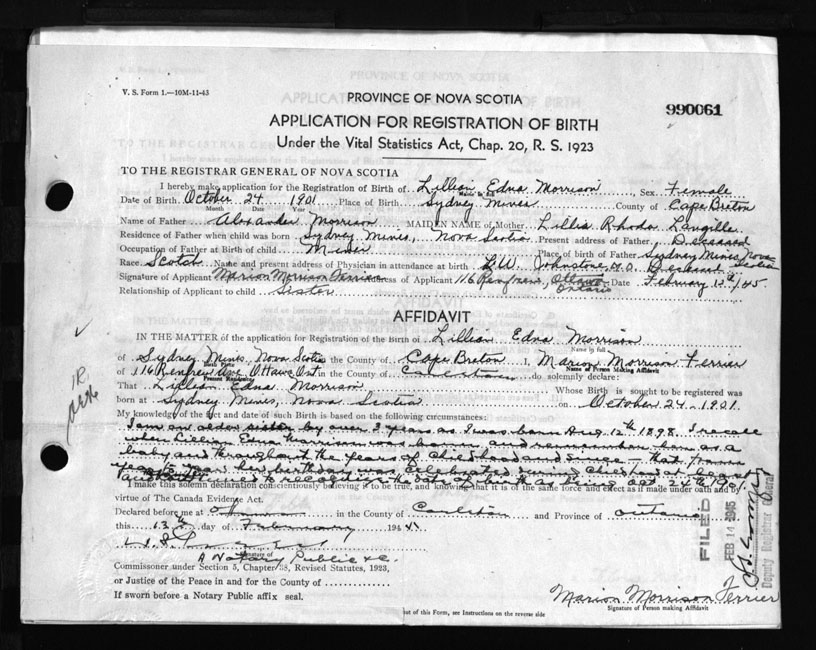 V. S. Form 1.—10M-11-43
PROVINCE OF NOVA SCOTIA
990061
APPLICATION FOR REGISTRATION OF BIRTH
Under the Vital Statistics Act, Chap. 20, R. S. 1923
TO THE REGISTRAR GENERAL OF NOVA SCOTIA
I hereby make application for the Registration of Birth of Lillian Edna Morrison, Sex Female
Date of Birth October 24 1901 Place of Birth Sydney Mines County of Cape Breton
Month Date Year
Name of Father Alexander Morrison MAIDEN NAME of Mother Lillia Rhoda Langille
Residence of Father when child was born Sydney Mines, Nova Scotia Present address of Father Deceased
Occupation of Father at Birth of child Miner Place of birth of Father Sydney Mines Nova Scotia
Race Scotch Name and present address of Physician in attendance at birth L.W. Johnstone M.D. Deceased
Signature of Applicant Marion Morrison Ferrier Address of Applicant 116 Renfrew, Ottawa Ontario Date February 13th/45
Relationship of Applicant to child Sister
AFFIDAVIT
IN THE MATTER of the application for Registration of the Birth of Lillian Edna Morrison
Name in full
of Sydney Mines Nova Scotia in the County of Cape Breton I, Marion Morrison Ferrier
Birth Place Name of Person Making Affidavit
of 116 Renfrew Ave Ottawa Ont in the County of Carleton do solemnly declare:
Present Residence
That Lillian Edna Morrison Whose Birth is sought to be registered was
born at Sydney Mines, Nova Scotia on October 24 1901.
My knowledge of the fact and date of such Birth is based on the following circumstances:
I am an older sister by over 3 years as I was born Aug 12th 1898. I recall
when Lillian Edna Morrison was born and remember her as a
baby and throughout the years of childhood and since that from
year to year her birthday was celebrated during childhood
used to recognize the date of birth as being Oct 24th 1901
I make this solemn declaration conscientiously believing it to be true, and knowing that it is of the same force and effect as if made under oath and by
virtue of The Canada Evidence Act.
Declared before me at Ottawa in the County of Carleton and Province of Ontario
this 13th day of February 1945
A Notary Public
Signature of
Commissioner under Section 5, Chapter 38, Revised Statutes, 1923,
or Justice of the Peace in and for the County of
If sworn before a Notary Public affix seal.
Marion Morrison Ferrier
Signature of Person making Affidavit
out of this Form, see Instructions on the reverse side
FILED
FEB 14 1945
Deputy Registrar General